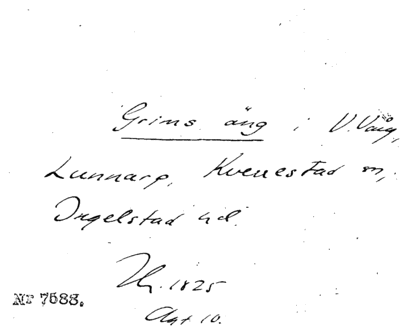 Grims äng i V. Våg,
Lunnarp, Kvenestad m,
Ingelstad hd.
Th. 1825
Akt 10.
Nr 7588.